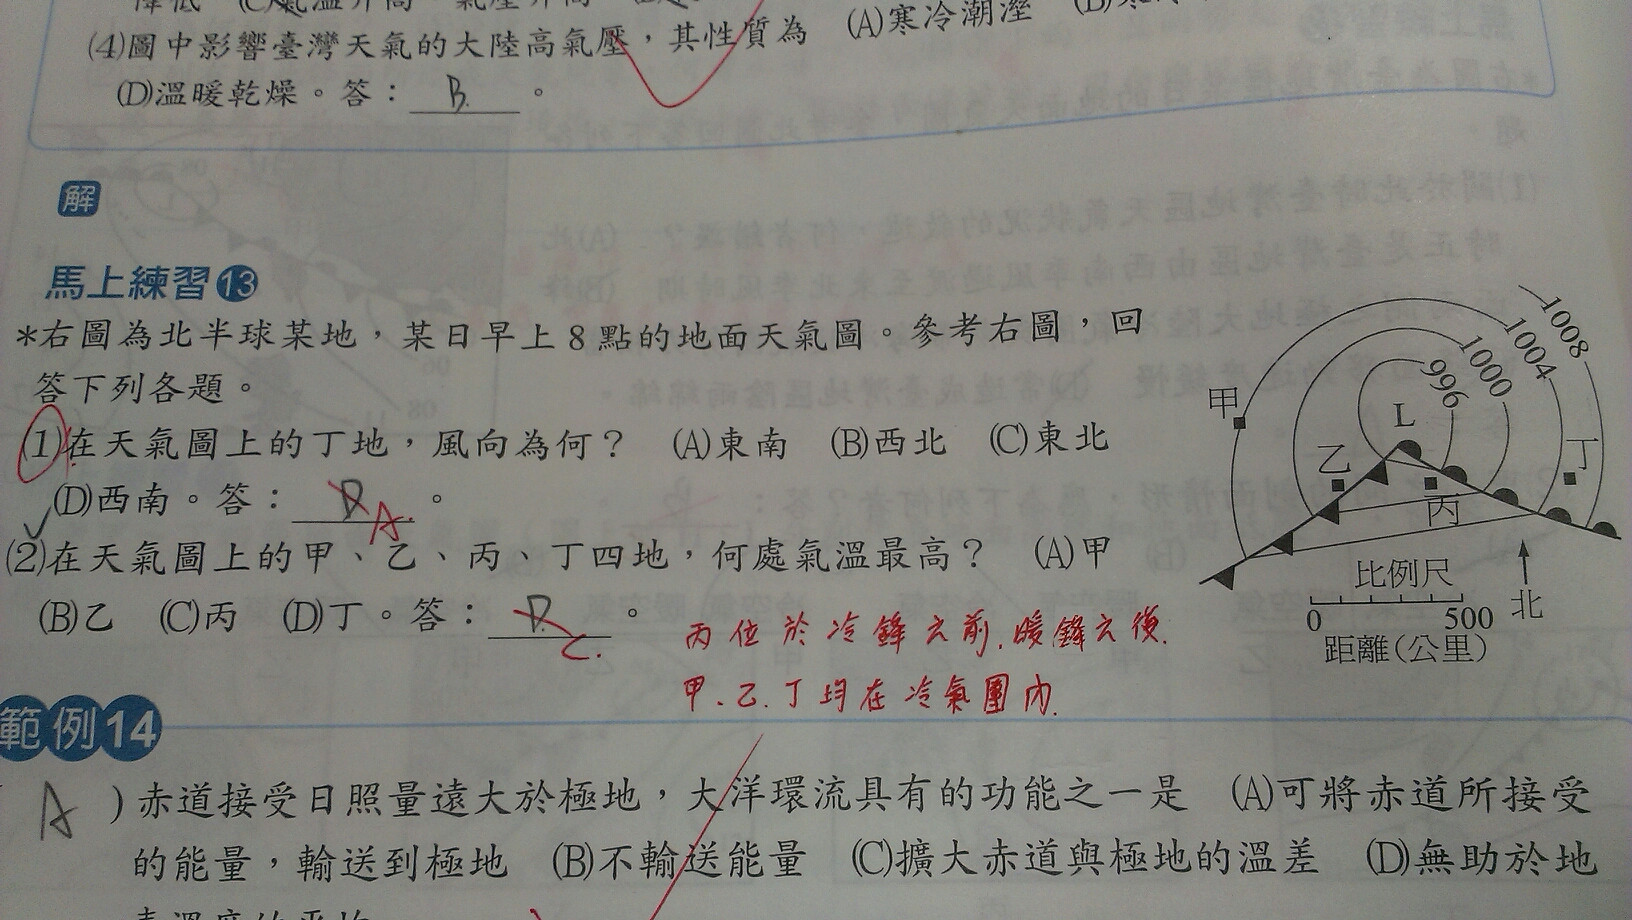 降低 (C)氣溫升高、氣壓升高
(4)圖中影響臺灣天氣的大陸高氣壓，其性質為 (A)寒冷潮溼
(D)溫暖乾燥。答：B。
解
馬上練習13
*右圖為北半球某地，某日早上8點的地面天氣圖。參考右圖，回
答下列各題。
(1)在天氣圖上的丁地，風向為何？ (A)東南 (B)西北 (C)東北
(D)西南。答：D A。
(2)在天氣圖上的甲、乙、丙、丁四地，何處氣溫最高？ (A)甲
(B)乙 (C)丙 (D)丁。答：D C.。
丙位於冷鋒之前,暖鋒之後.
甲、乙、丁均在冷氣團內.
1008
1004
1000
996
甲
L
乙
丙
丁
比例尺
0 500
距離(公里)
北
範例14
A )赤道接受日照量遠大於極地，大洋環流具有的功能之一是 (A)可將赤道所接受
的能量，輸送到極地 (B)不輸送能量 (C)擴大赤道與極地的溫差 (D)無助於地